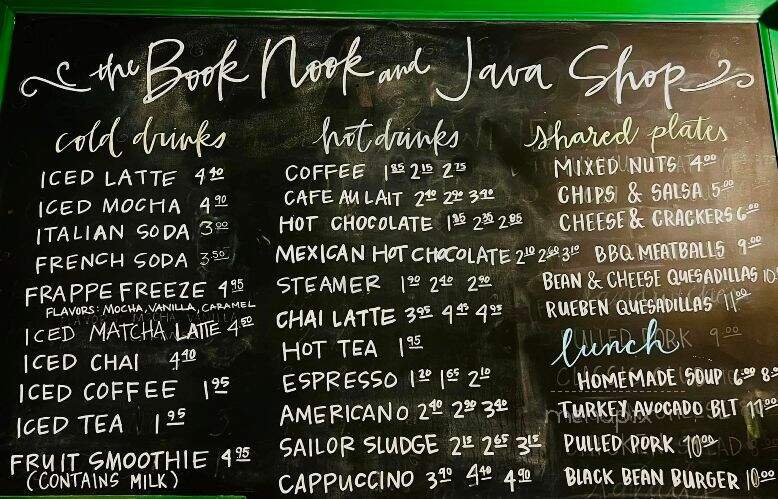 the Book Nook and Java Shop
cold drinks
ICED LATTE 4.40
ICED MOCHA 4.90
ITALIAN SODA 3.00
FRENCH SODA 3.50
FRAPPE FREEZE 4.95
FLAVORS: MOCHA, VANILLA, CARAMEL
ICED MATCHA LATTE 4.50
ICED CHAI 4.40
ICED COFFEE 1.95
ICED TEA 1.95
FRUIT SMOOTHIE 4.95
(CONTAINS MILK)
hot drinks
COFFEE 1.85 2.15 2.75
CAFE AU LAIT 2.40 2.90 3.40
HOT CHOCOLATE 1.85 2.35 2.85
MEXICAN HOT CHOCOLATE 2.10 2.60 3.10
STEAMER 1.90 2.40 2.90
CHAI LATTE 3.95 4.45 4.95
HOT TEA 1.95
ESPRESSO 1.20 1.65 2.10
AMERICANO 2.40 2.90 3.40
SAILOR SLUDGE 2.15 2.65 3.15
CAPPUCCINO 3.90 4.40 4.90
shared plates
MIXED NUTS 4.00
CHIPS & SALSA 5.00
CHEESE & CRACKERS 6.00
BBQ MEATBALLS 9.00
BEAN & CHEESE QUESADILLAS 10
RUEBEN QUESADILLAS 11.00
lunch
HOMEMADE SOUP 6.00 8
TURKEY AVOCADO BLT 11.00
PULLED PORK 10.00
BLACK BEAN BURGER 10.00